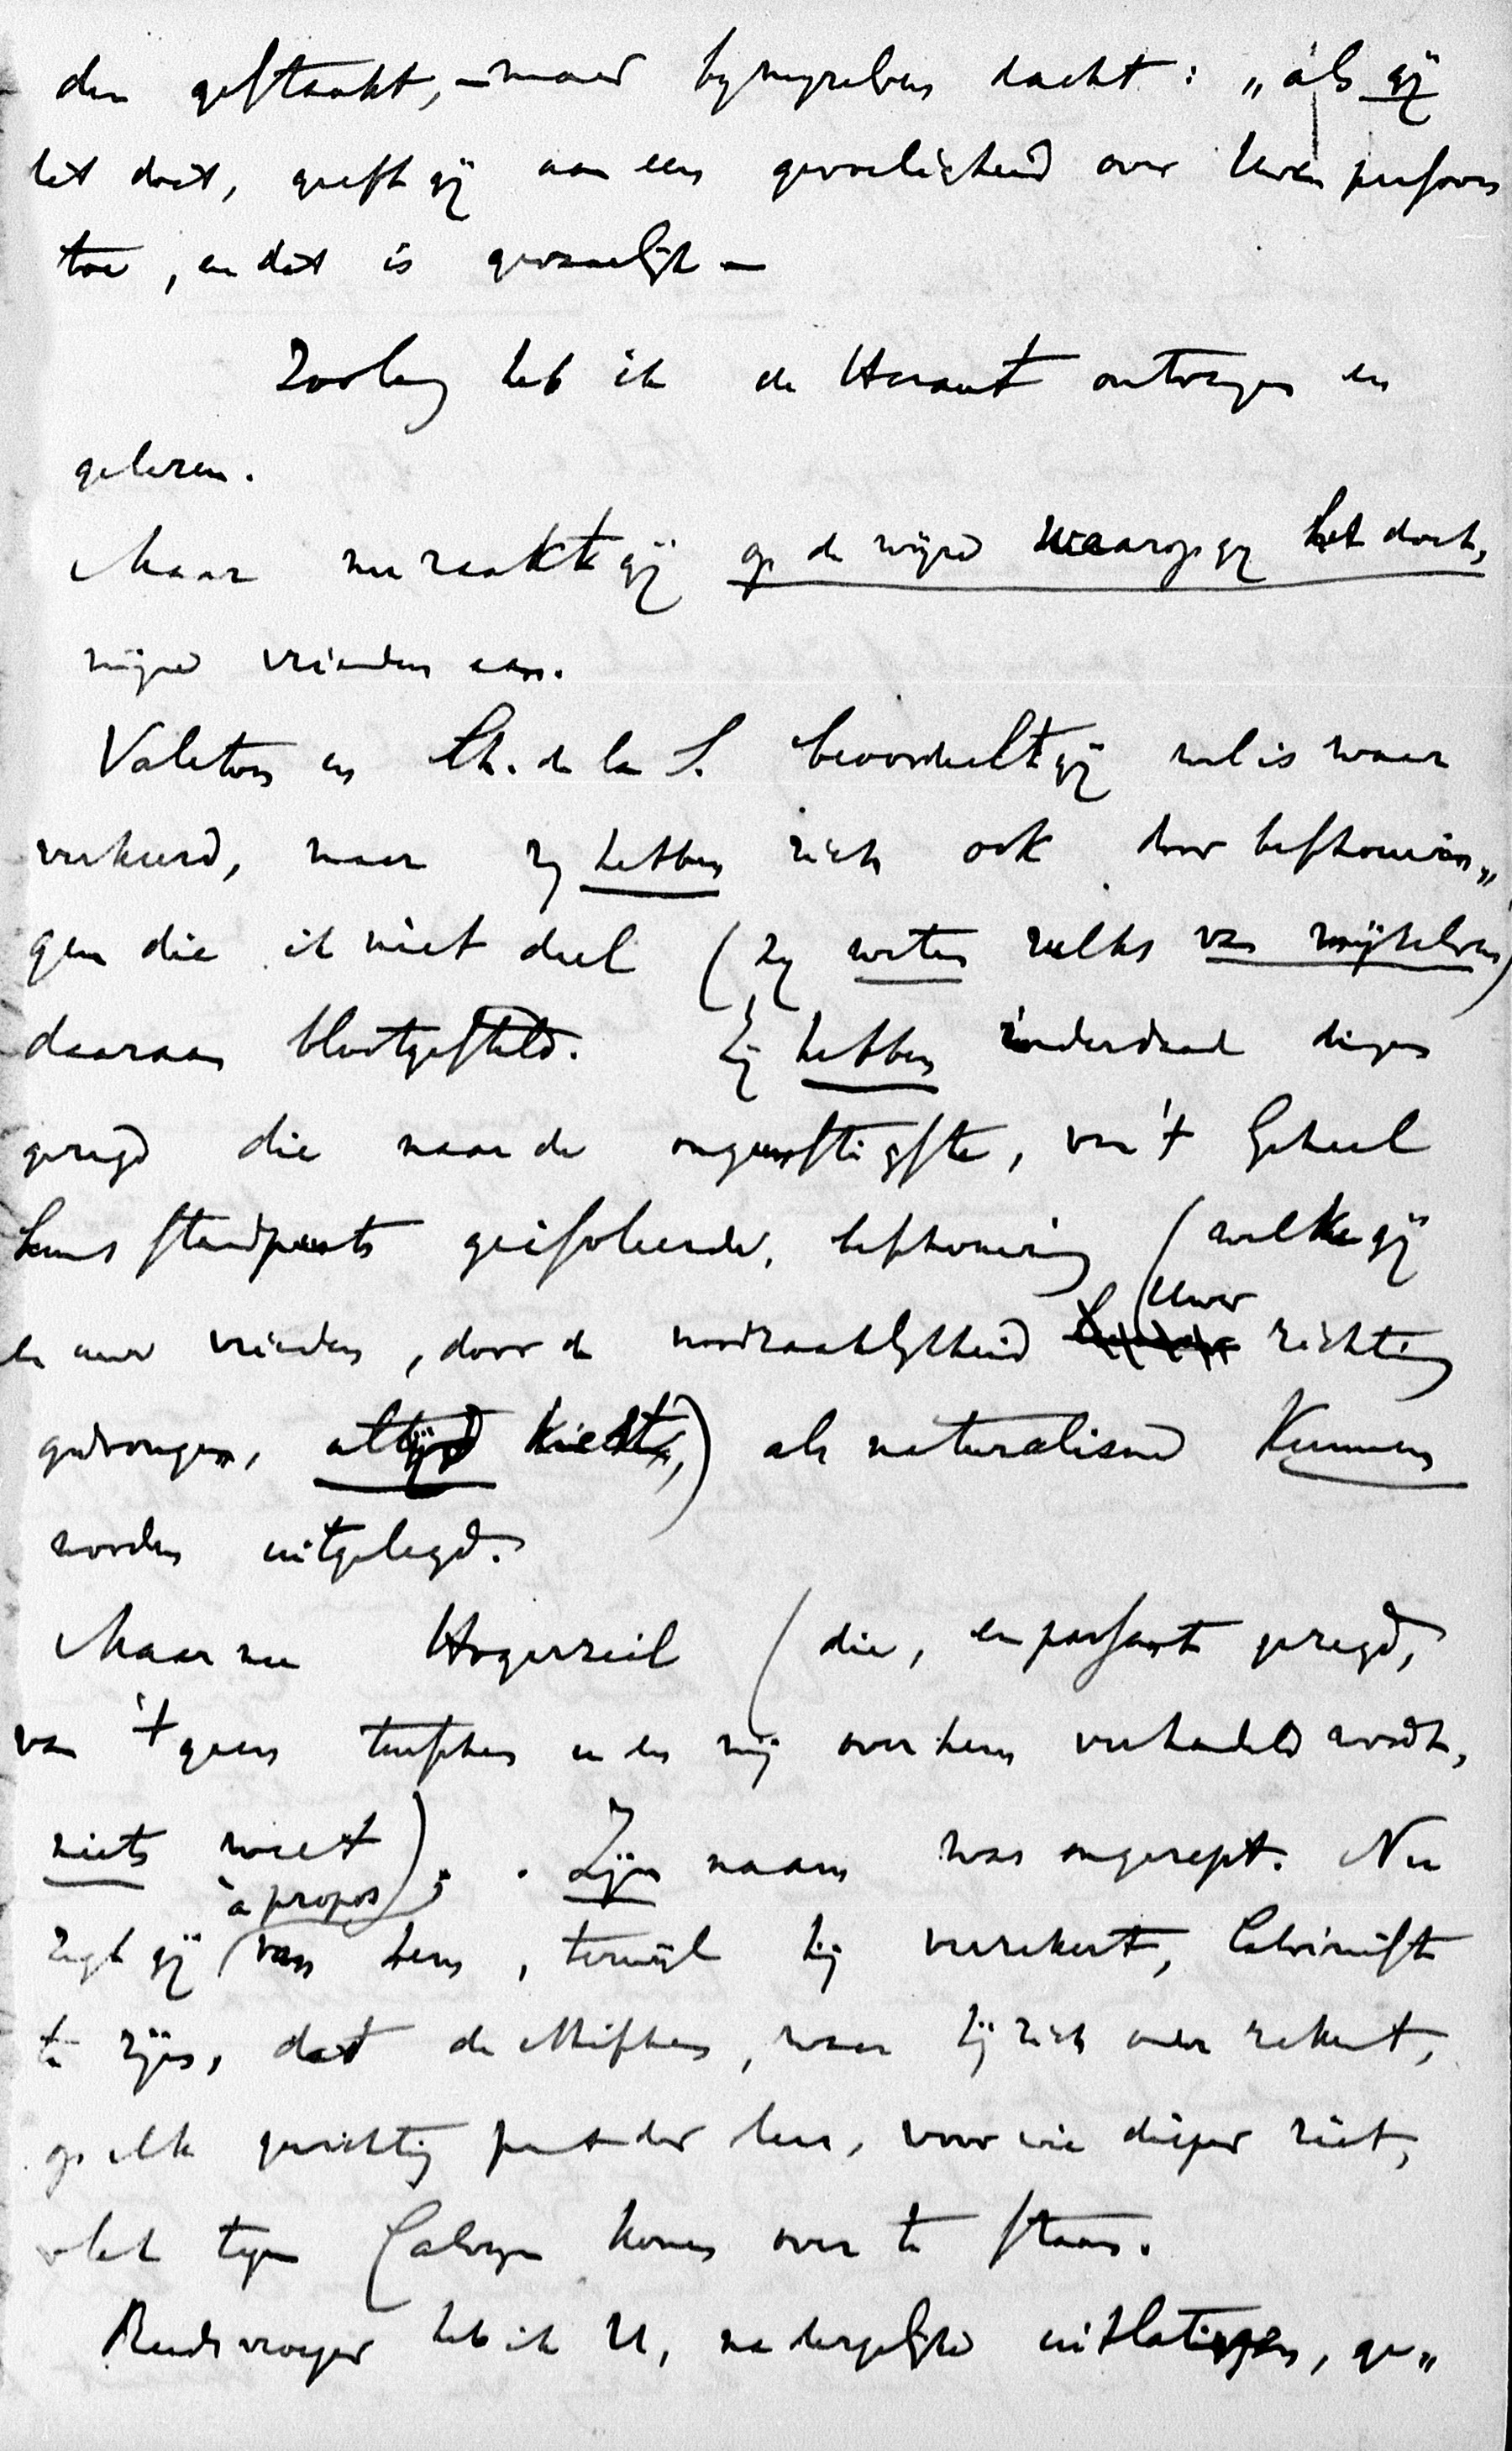 den gestaakt, – maar by mijzelven dacht: „als gij
het doet, geeft gij aan een gevoeligheid over Uwen persoon
toe, en dat is gevaarlijk –
Zoolang heb ik de Heraut ontvangen en
gelezen.
Maar nu raakt gij op de wijze waarop gij het doet,
mijne vrienden aan.
Valeton en Ch. de la S. beoordeelt gij wel is waar
verkeerd, maar zy hebben zich ook door beschouwin„
gen die ik niet deel (zy weten zulks van mijzelven)
daaraan blootgesteld. Zij hebben inderdaad dingen
gezegd die naar de ongunstigste, van 't Geheel
huns standpunts geisoleerde, beschouwing (welke gij
en uwe vrienden, door de noodzakelijkheid Uwer richting
gedrongen, altijd kiest,) als naturalisme kunnen
worden uitgelegd.
Maar nu Hogerzeil (die, en passant gezegd,
van 't geen tusschen u en mij over hem verhandeld wordt,
niets weet); . Zijn naam was ongerept. Nu
à propos)
zegt gij (van hem, terwijl hij verzekert, Calvinist
te zijn, dat de Ethischen, waar hij zich onder rekent,
op elk gewichtig punt der leer, voor wie dieper ziet,
vlak tegen Calvyn komen over te staan.
Reeds vroeger heb ik U, na dergelijke uitlatingen, ge„